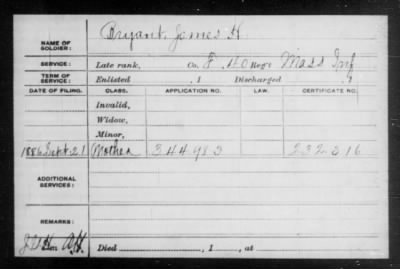 NAME OF SOLDIER: Bryant, James H
SERVICE: Late rank, Co. F, 40 Reg't Mass Inf
TERM OF SERVICE: Enlisted , 1 Discharged , 1
DATE OF FILING. CLASS. APPLICATION NO. LAW. CERTIFICATE NO.
Invalid,
Widow,
Minor,
1886 Sept 21 Mother 344983 232316
ADDITIONAL SERVICES:
REMARKS:
Died , 1 , at